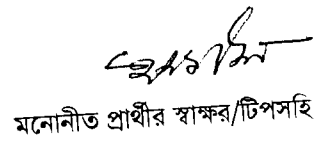 মনোনীত প্রার্থীর স্বাক্ষর/টিপসহি